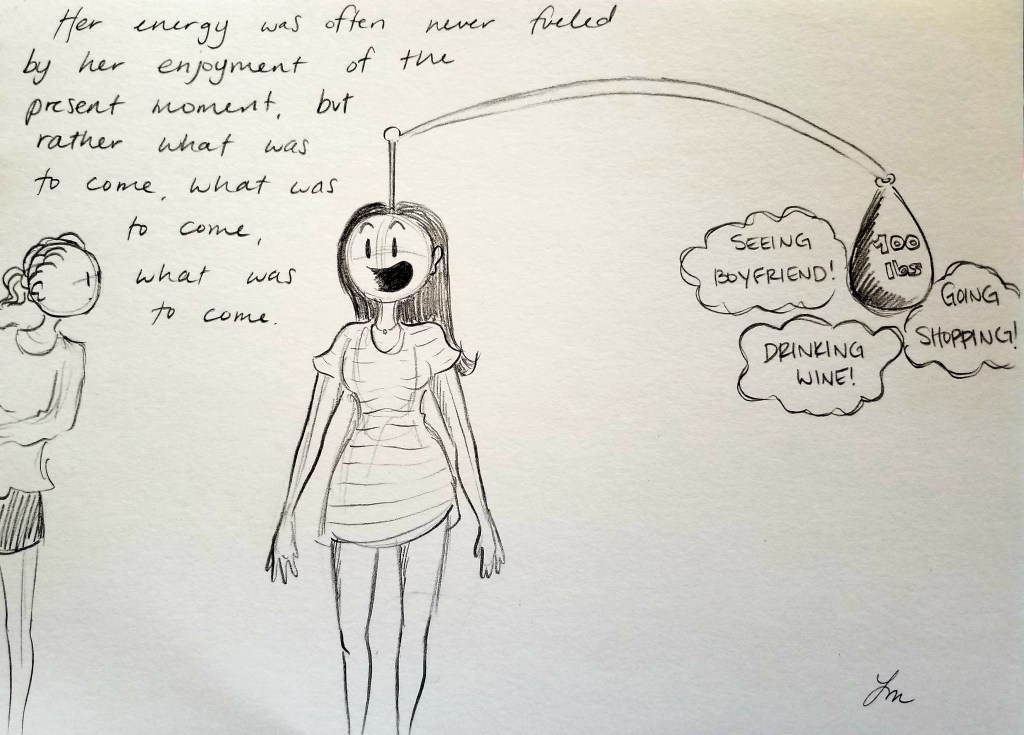 Her energy was often never fueled
by her enjoyment of the
present moment, but
rather what was
to come, what was
to come,
what was
to come.
100
lbs
SEEING
BOYFRIEND!
GOING
SHOPPING!
DRINKING
WINE!